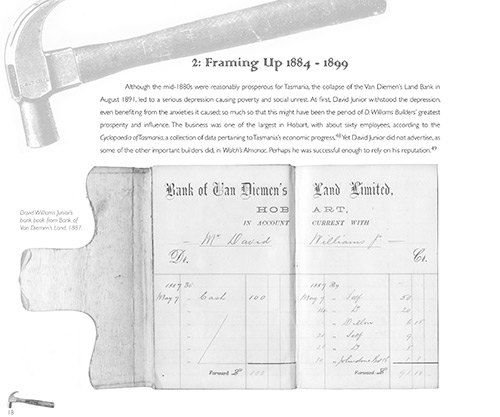 2: Framing Up 1884 - 1899
Although the mid-1880s were reasonably prosperous for Tasmania, the collapse of the Van Diemen's Land Bank in
August 1891, led to a serious depression causing poverty and social unrest. At first, David Junior withstood the depression,
even benefiting from the anxieties it caused; so much so that this might have been the period of D Williams Builders' greatest
prosperity and influence. The business was one of the largest in Hobart, with about sixty employees, according to the
Cyclopaedia of Tasmania, a collection of data pertaining to Tasmania's economic progress.48 Yet David Junior did not advertise, as
some of the other important builders did, in Walch's Almanac. Perhaps he was successful enough to rely on his reputation.49
David Williams Junior's
bank book from Bank of
Van Diemen's Land, 1887.
Bank of Van Diemen's Land Limited,
HOBART,
IN ACCOUNT CURRENT WITH
Mr David Williams Jr
Dr. Cr.
1887 1887
May 7 Cash 100 May 7 Self 50
20
Self
Forward £ Forward £
18